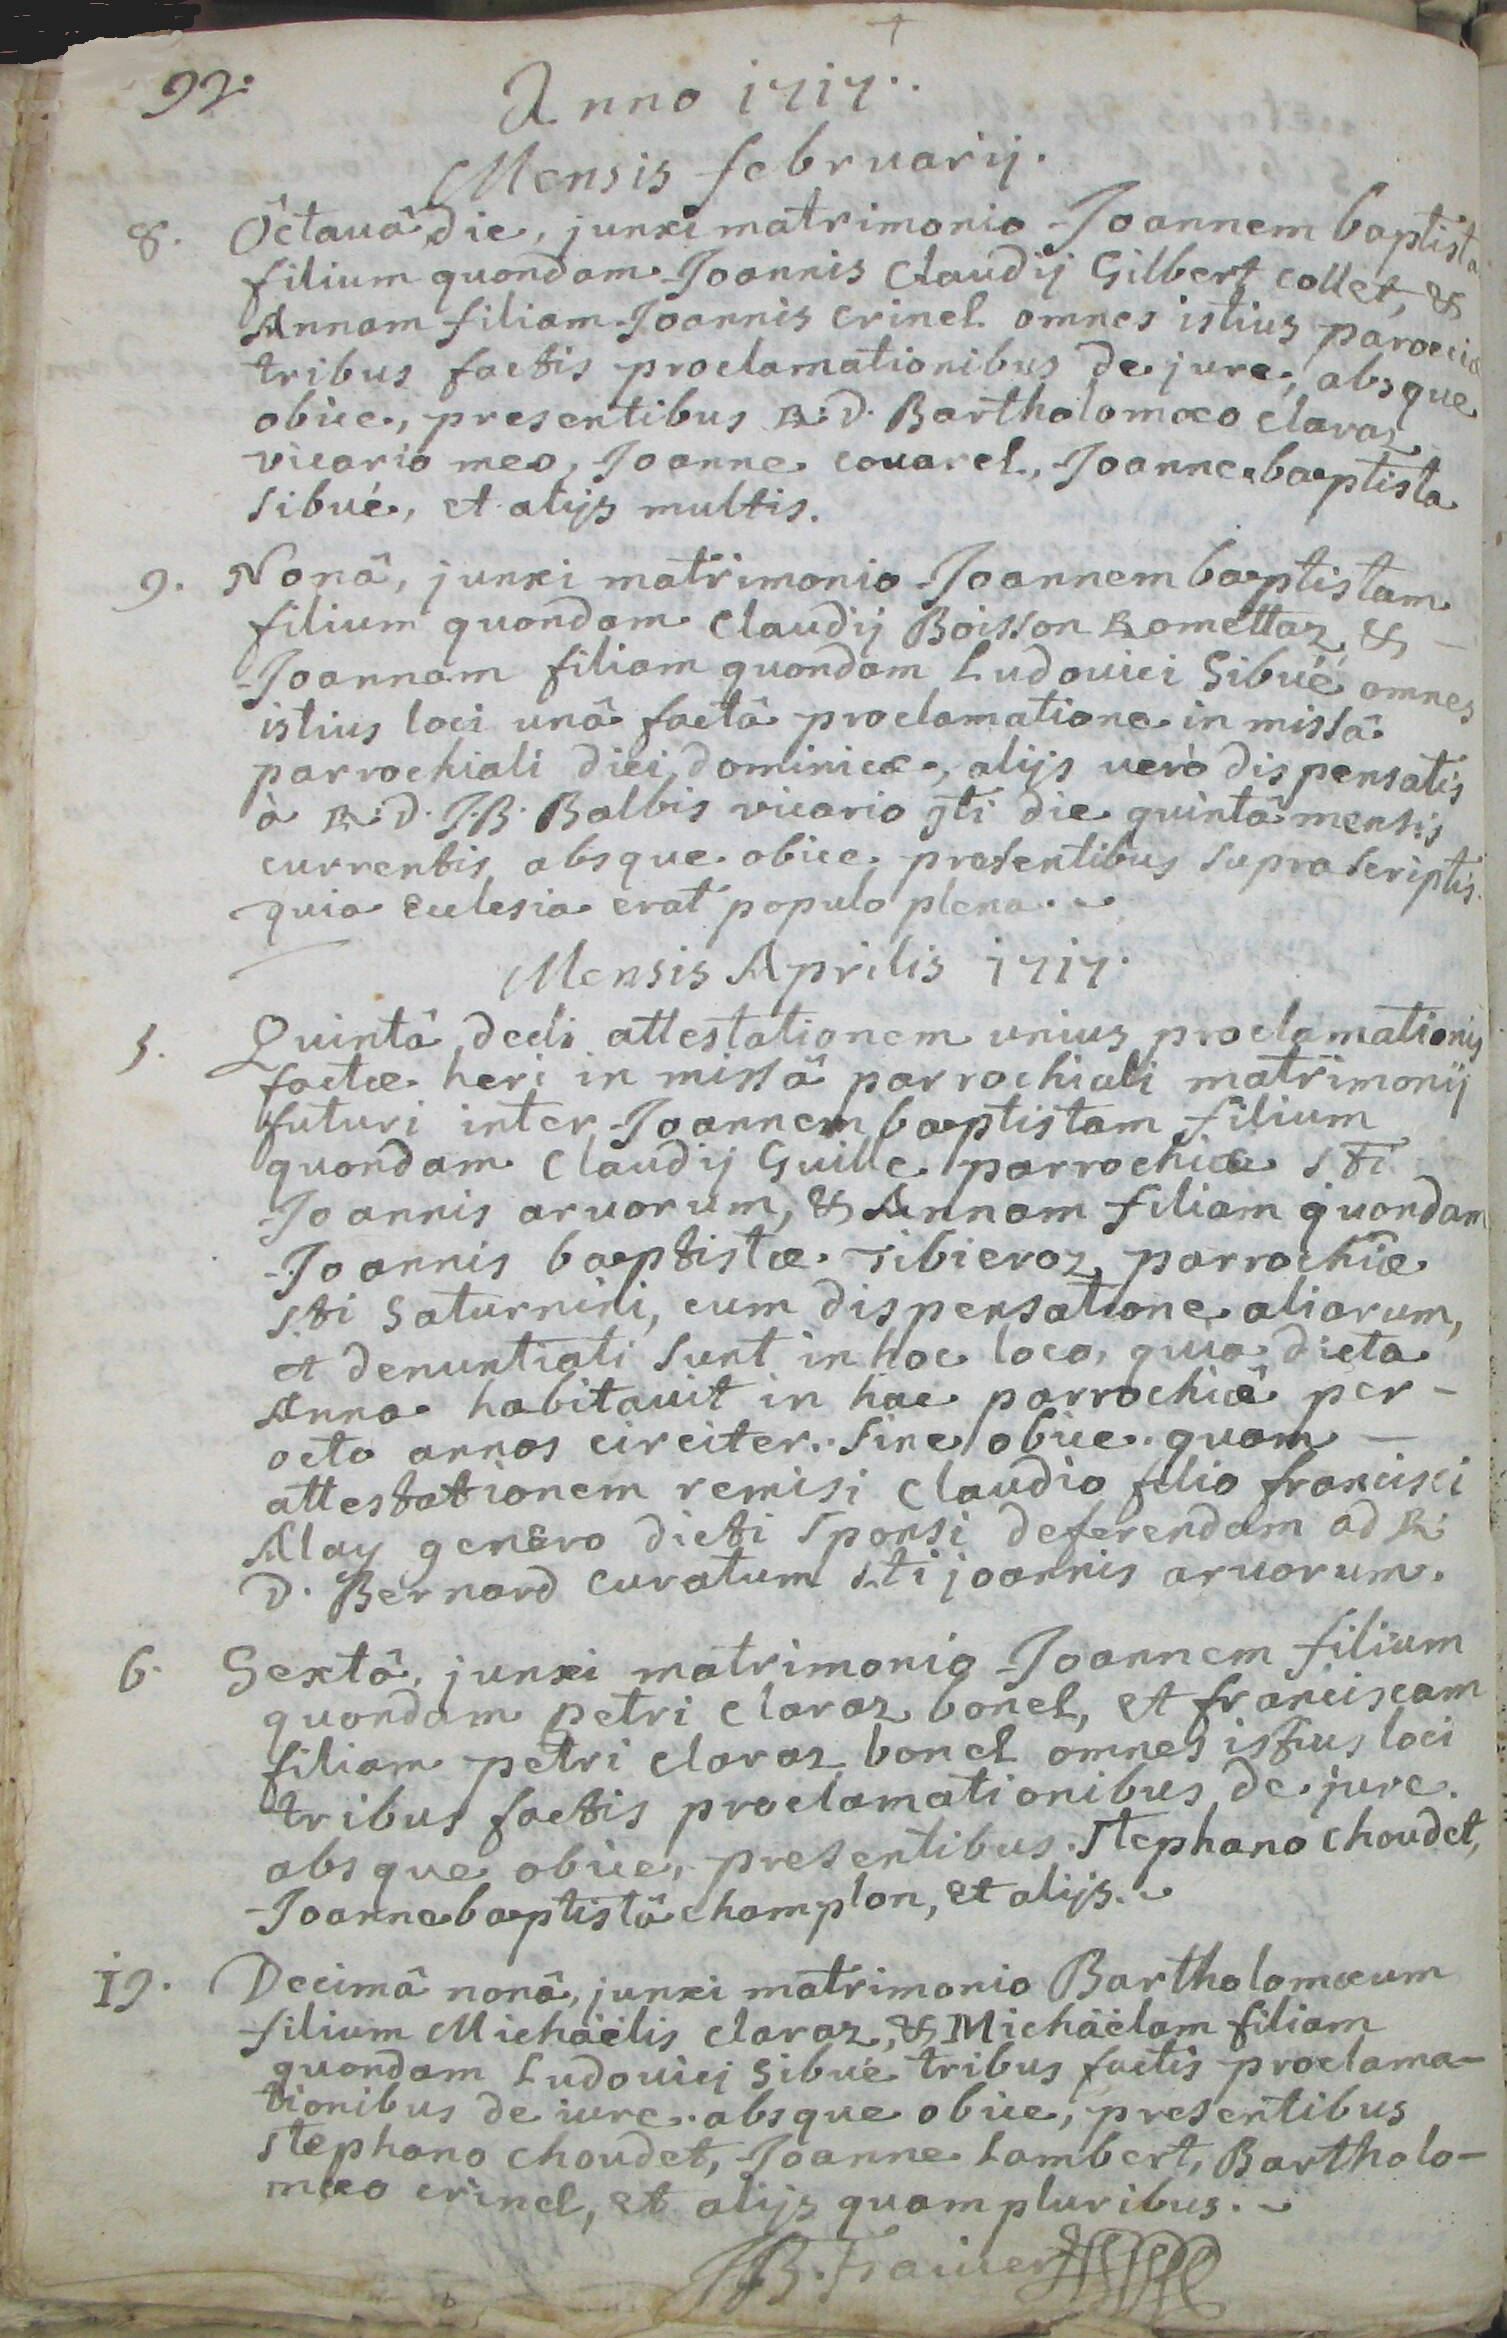 92.
Anno 1717.
Mensis februarij.
8. Octauâ die, junxi matrimonio Joannem baptista
filium quondam Joannis Claudij Gilbert collet, &
Annam filiam Joannis crinel omnes istius paroeciæ
tribus factis proclamationibus de jure, absque
obice, presentibus R: D. Bartholomæo claraz
vicario meo, Joanne couarel, Joanne baptista
sibué, et alijs multis.
9. Nonâ, junxi matrimonio Joannem baptistam
filium quondam Claudij Boisson Romettaz &
Joannam filiam quondam Ludouici Sibué omnes
istius loci unâ factâ proclamatione in missâ
parrochiali diei dominicæ, alijs verò dispensatis
à R: D. J.B. Balbis vicario gti die quintâ mensis
currentis absque obice presentibus suprascriptis
quia ecclesia erat populo plena.
Mensis Aprilis 1717.
5. Quintâ dedi attestationem unius proclamationis
factæ heri in missâ parrochiali matrimonij
futuri inter Joannem baptistam filium
quondam Claudij Guille parrochiæ sti
Joannis aruorum, & Annam filiam quondam
Joannis baptistæ Tibieroz parrochiæ
sti Saturnini, cum dispensatione aliarum,
et denuntiati sunt in hoc loco, quia dicta
Anna habitauit in hac parrochiâ per-
octo annos circiter. Sine obice. quam
attestationem remisi Claudio filio francisci
Alay genero dicti sponsi deferendam ad R:
D. Bernard curatum sti joannis aruorum.
6. Sextâ, junxi matrimonio Joannem filium
quondam petri claraz bonel, et franciscam
filiam petri claraz bonel omnes istius loci
tribus factis proclamationibus de jure.
absque obice, presentibus Stephano choudet,
Joanne baptistâ champlon, et alijs.
19. Decimâ nonâ, junxi matrimonio Bartholomæum
filium Michäelis claraz, & Michäelam filiam
quondam Ludouici Sibué tribus factis proclama-
tionibus de iure. absque obice, presentibus
stephano choudet, Joanne Lambert, Bartholo-
mæo crinel, et alijs quampluribus.